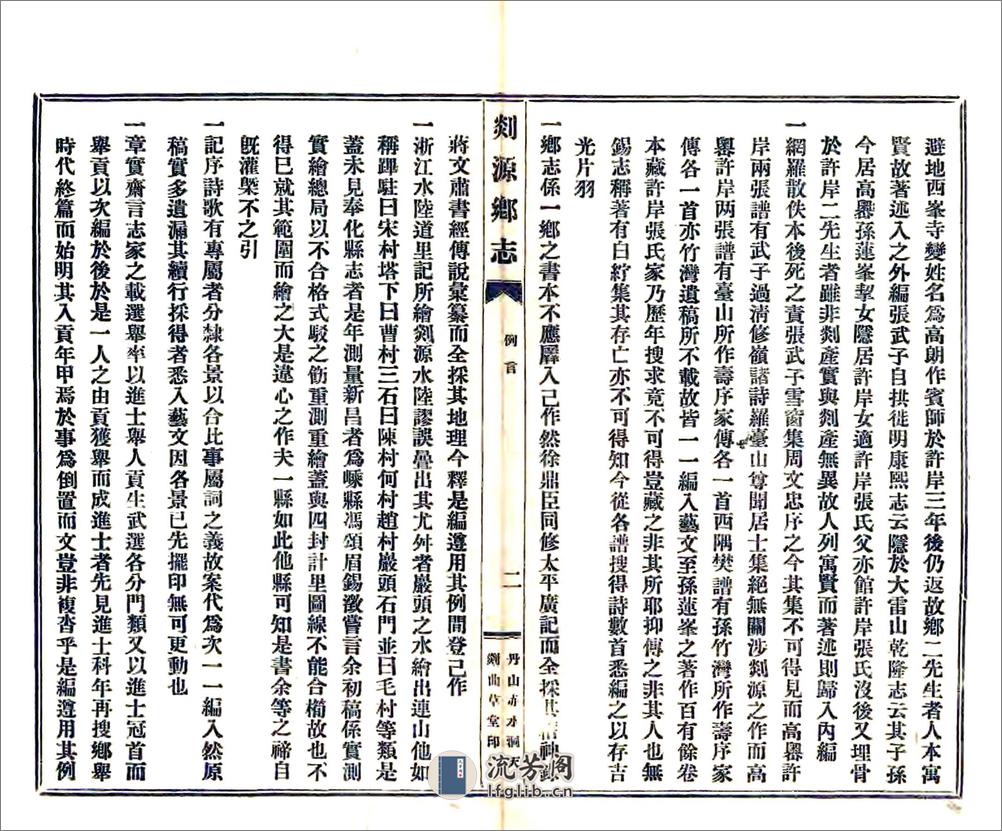 避地西峯寺變姓名爲高朗作賓師於許岸三年後仍返故鄉二先生者人本寓
賢故著述入之外編張武子自拱從明康熙志云隱於大雷山乾隆志云其子孫
今居高嶴孫蓮峯挈女隱居許岸女適許岸張氏父亦館許岸張氏沒後又埋骨
於許岸二先生者雖非剡產實與剡產無異故人列寓賢而著述則歸入內編
一網羅散佚本後死之責張武子雪窗集周文忠序之今其集不可得見而高嶴許
岸兩張譜有武子過淸修嶺諸詩羅臺山尊聞居士集絕無關涉剡源之作而高
嶴許岸两張譜有臺山所作壽序家傳各一首西隅樊譜有孫竹灣所作壽序家
傳各一首亦竹灣遺稿所不載故皆一一編入藝文至孫蓮峯之著作百有餘卷
本藏許岸張氏家乃歷年搜求竟不可得豈藏之非其所耶抑傳之非其人也無
錫志稱著有白紵集其存亡亦不可得知今從各譜搜得詩數首悉編之以存吉
光片羽
一鄉志係一鄉之書本不應羼入己作然徐鼎臣同修太平廣記而全採其稽神錄
剡源鄉志
例言
二
丹山赤水洞天
剡曲草堂印
蔣文肅書經傳說彙纂而全採其地理今釋是編遵用其例間登己作
一浙江水陸道里記所繪剡源水陸謬誤曡出其尤舛者巖頭之水繪出連山他如
稱蹕駐曰宋村塔下曰曹村三石曰陳村何村趙村巖頭石門並曰毛村等類是
蓋未見奉化縣志者是年測量新昌者爲嵊縣馮頌眉錫徵嘗言余初稿係實測
實繪總局以不合格式駁之飭重測重繪蓋與四封計里圖線不能合檔故也不
得已就其範圍而繪之大是違心之作夫一縣如此他縣可知是書余等之禘自
旣灌槩不之引
一記序詩歌有專屬者分隸各景以合比事屬詞之義故案代爲次一一編入然原
稿實多遺漏其續行採得者悉入藝文因各景已先擺印無可更動也
一章實齋言志家之載選舉率以進士舉人貢生武選各分門類又以進士冠首而
舉貢以次編於後於是一人之由貢獲舉而成進士者先見進士科年再搜鄉舉
時代終篇而始明其入貢年甲焉於事爲倒置而文豈非複沓乎是編遵用其例
流芳阁
lfglib.cn